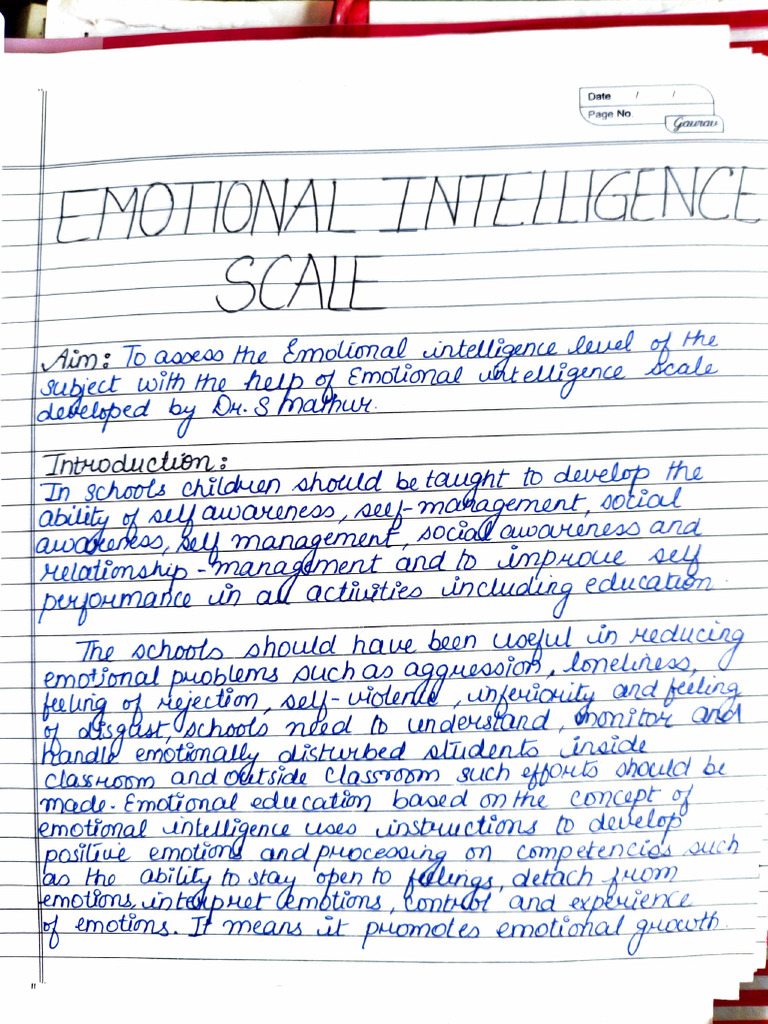 Date / /
Page No.
Gaurav
EMOTIONAL INTELLIGENCE
SCALE
Aim: To assess the Emotional intelligence level of the
subject with the help of Emotional intelligence Scale
developed by Dr. S Mathur.
Introduction:
In schools children should be taught to develop the
ability of self awareness, self-management, social
awareness, self management, social awareness and
relationship-management and to improve self
performance in all activities including education.
The schools should have been useful in reducing
emotional problems such as aggression, loneliness,
feeling of rejection, self-violence, inferiority and feeling
of disgust, schools need to understand, monitor and
handle emotionally disturbed students inside
classroom and outside classroom such efforts should be
made. Emotional education based on the concept of
emotional intelligence uses instructions to develop
positive emotions and processing on competencies such
as the ability to stay open to feelings, detach from
emotions, interpret emotions, control and experience
of emotions. It means it promotes emotional growth.